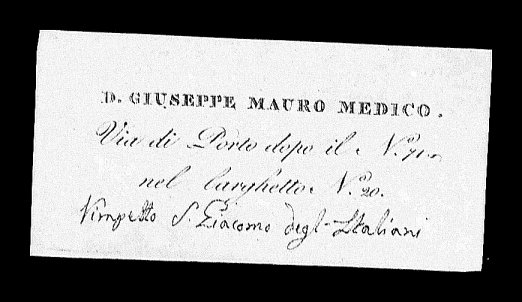 D. GIUSEPPE MAURO MEDICO.
Via di Porto dopo il N.º 71
nel larghetto N.º 20.
Rimpetto S. Giacomo degl-Italiani